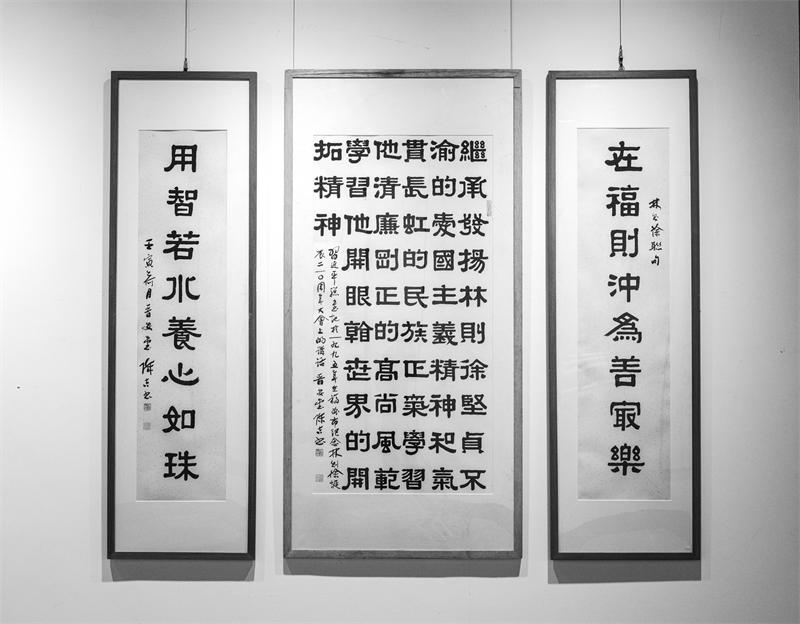 在福則沖為善冣樂
林则徐聯句
繼承發揚林則徐堅貞不
渝的愛國主義精神和氣
貫長虹的民族正氣學習
他清廉剛正的高尚風範
學習他開眼看世界的開
拓精神
習近平總書記於一九九五年在福州市紀念林则徐誕
辰二一〇周年大會上的講話 晉安堂
用智若水養心如珠
壬寅荷月晉安堂